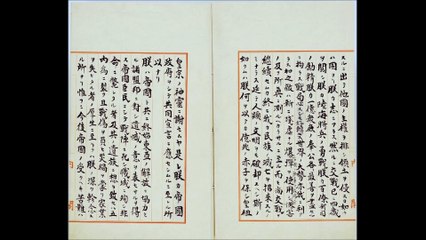 スルニ出テ他國ノ主權ヲ排シ領土ヲ侵スカ如キ
ハ固ヨリ朕カ志ニアラス然ルニ交戰已ニ四歳
ヲ閲シ朕カ陸海將兵ノ勇戰朕カ百僚有司ノ
勵精朕カ一億衆庶ノ奉公各〻最善ヲ盡セルニ
拘ラス戰局必スシモ好轉セス世界ノ大勢亦我ニ利アラ
ス加之敵ハ新ニ殘虐ナル爆彈ヲ使用シテ頻ニ無辜ヲ殺傷シ慘害
ノ及フ所眞ニ測ルヘカラサルニ至ル而モ尚交戰ヲ
繼續セムカ終ニ我カ民族ノ滅亡ヲ招來スルノ
ミナラス延テ人類ノ文明ヲモ破却スヘシ斯ノ
如クムハ朕何ヲ以テカ億兆ノ赤子ヲ保シ皇祖
皇宗ノ神靈ニ謝セムヤ是レ朕カ帝國
政府ヲシテ共同宣言ニ應セシムルニ至レル所
以ナリ
朕ハ帝國ト共ニ終始東亞ノ解放ニ協力セ
ル諸盟邦ニ對シ遺憾ノ意ヲ表セサルヲ得
ス帝國臣民ニシテ戰陣ニ死シ職域ニ殉シ非
命ニ斃レタル者及其ノ遺族ニ想ヲ致セハ五
内爲ニ裂ク且戰傷ヲ負ヒ災禍ヲ蒙リ家業
ヲ失ヒタル者ノ厚生ニ至リテハ朕ノ深ク軫念ス
ル所ナリ惟フニ今後帝國ノ受クヘキ苦難ハ